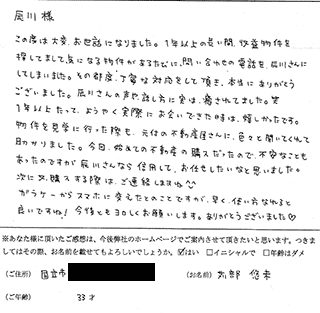 辰川 様
この度は大変、お世話になりました。1年以上の長い間、収益物件を
探してまして、気になる物件があるたびに、問い合わせの電話を、辰川さんに
してしまいました。その都度、丁寧な対応をして頂き、本当にありがとう
ございました。辰川さんの声や話し方に実は、癒されてました。笑
1年以上たって、ようやく実際にお会いできた時は、嬉しかったです。
物件を見学に行った際も、元付の不動産屋さんに、色々と聞いてくれて
助かりました。今回、始めての不動産の購入だったので、不安なことも
あったのですが辰川さんなら信用して、お任せしたいなと思いました。
次に又、購入する際は、ご連絡しますね^^
ガラケーからスマホに変えたとのことですが、早く、使い方なれると
良いですね!今後とも ヨロしくお願いします。ありがとうございました♡
※あなた様に頂いたご感想は、今後弊社のホームページでご案内させて頂きたいと思います。つきま
してはその際、お名前を載せてもよろしいでしょうか。☑はい □イニシャルで □年齢はダメ
(ご住所) 国立市 (お名前)
(ご年齢) 33才